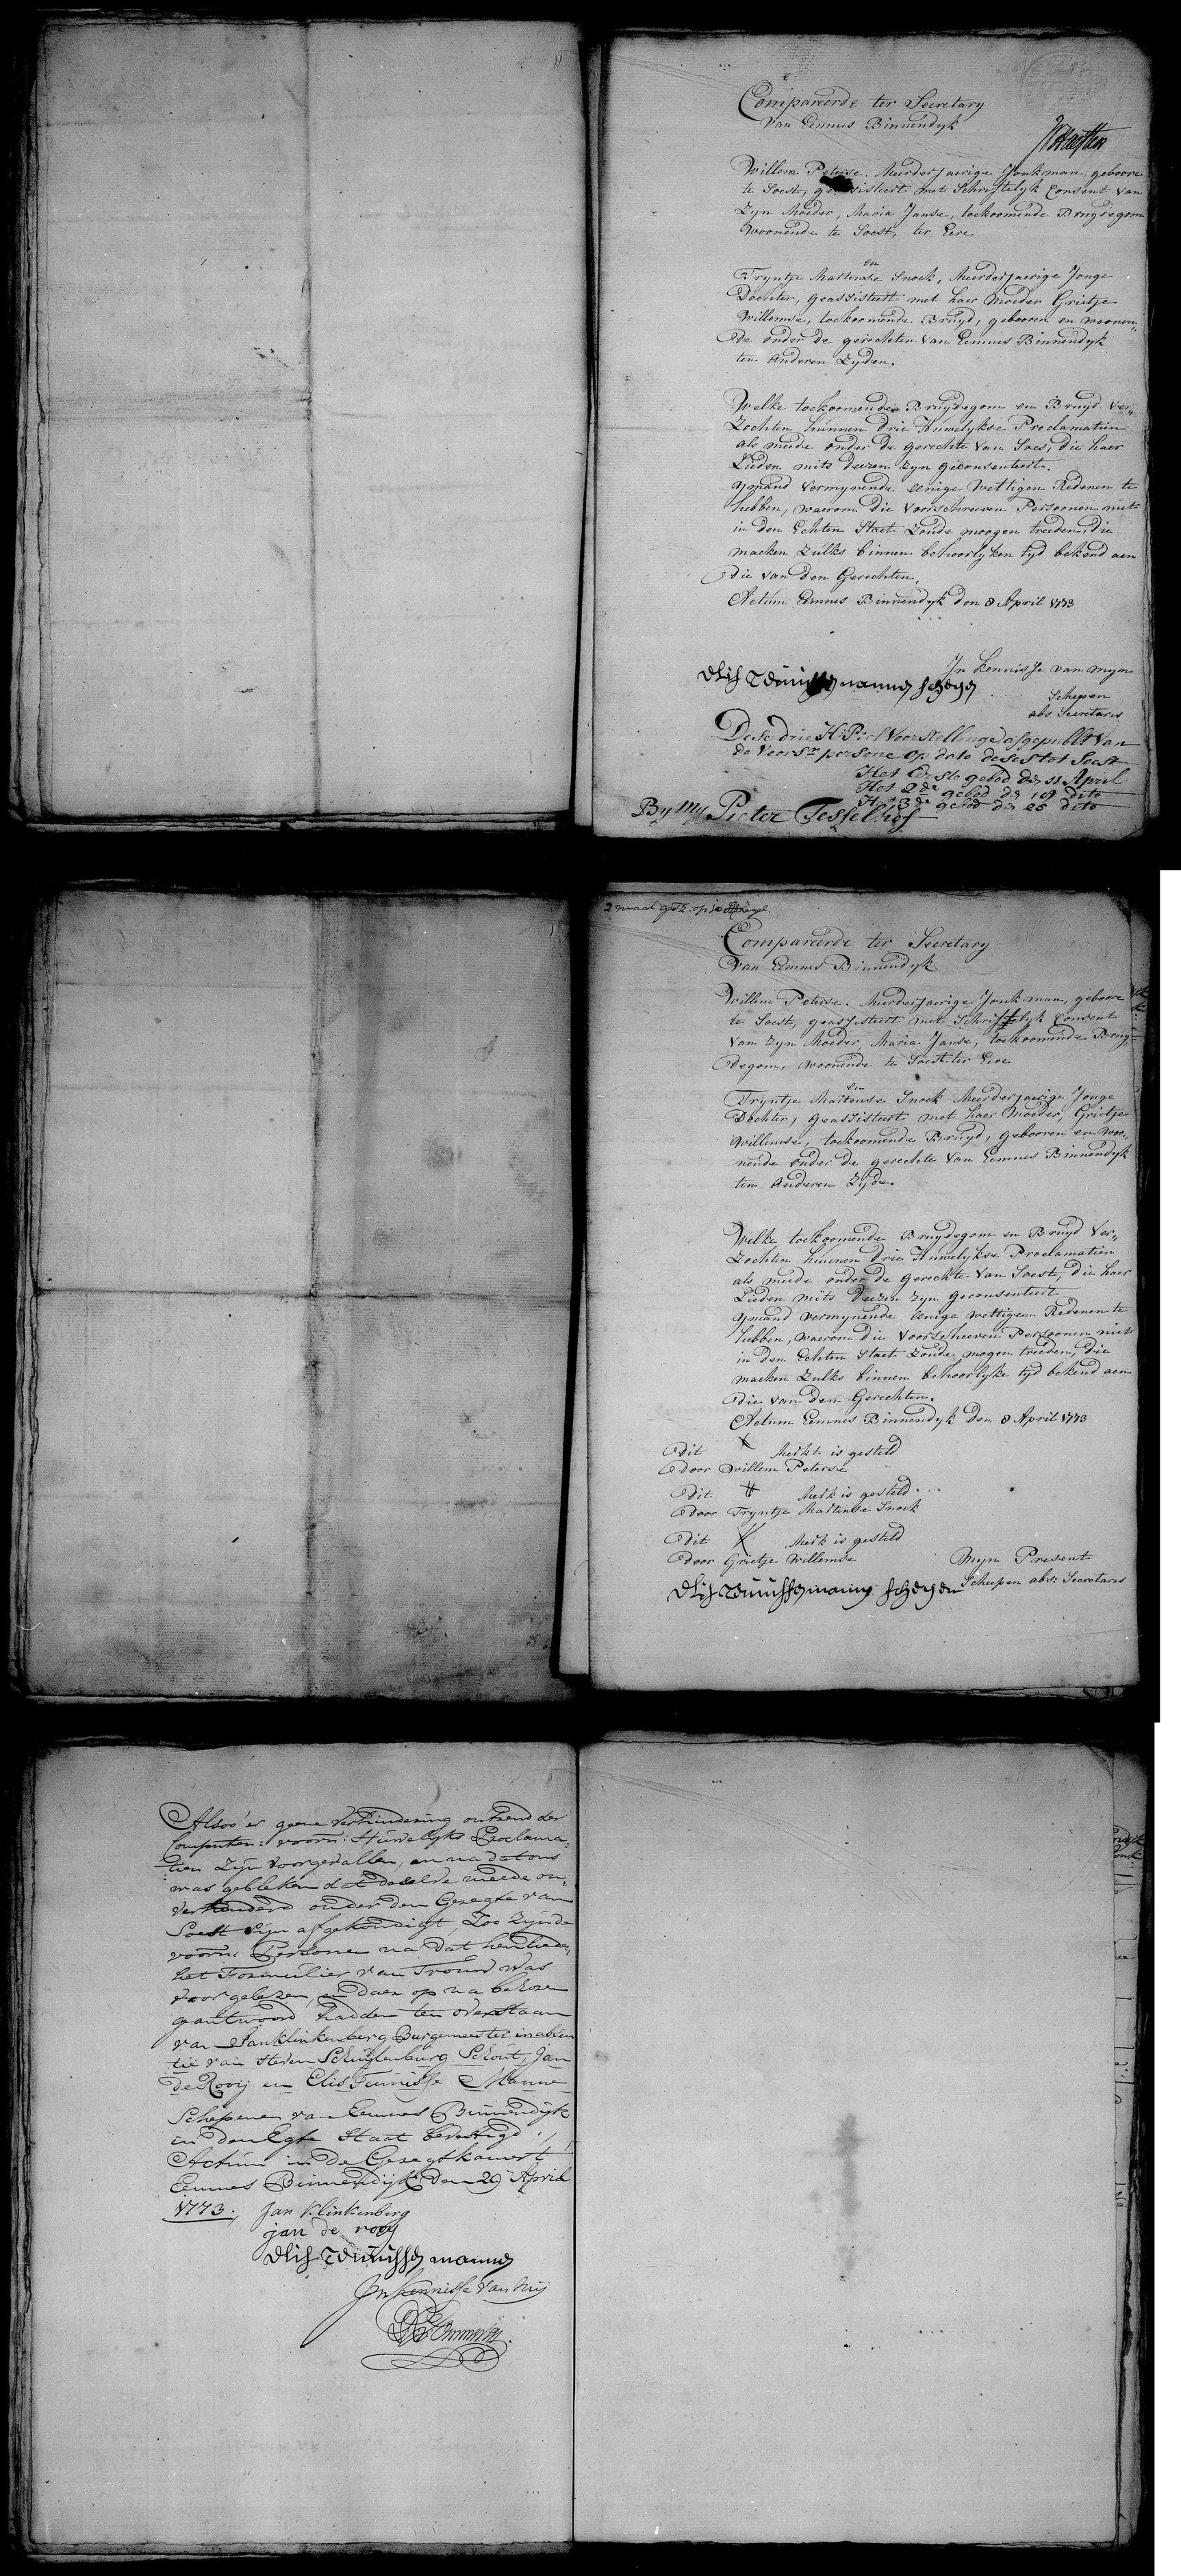 Compareerde ter Secretary
Van Eemnes Binnendyk
Willem Peterse. Meerderjaerige Jonkman, geboore
te Soest, geassisteert met Schriftelyk Consent van
Zyn Moeder, Maria Janse, toekoomende Bruydegom
Woonende te Soest, ter Eere
en
Tryntje Martense Snoek, Meerderjaerige Jonge
Dochter, geassisteert met haer Moeder Grietje
Willemse, toekoomende Bruyd, gebooren en woonen„
de onder de gerechten van Eemnes Binnendyk
ten Anderen Zyden.
Welke toekoomende Bruydegom en Bruyd ver„
Zochten hunnen drie Huwelykse Proclamatien
als meede onder de gerechte van Soes, die haer
Lieden mits deezen zyn geconsenteert.
ymand vermynende eenige wettigen Redenen te
hebben, waerom die voorschreeven Persoonen niet
in den Echten Staet zoude moogen treeden, die
maeken zulks binnen behoorlyken tyd bekend aen
die van den Gerechten.
Actum Eemnes Binnendyk den 8 April 1773
In kennisse van myn
Elis Teunissen manne schepen
Schepen
abs Secretaris
Dese drie H: Pr: Voorstellinge afgepubl: Van
de Voorsr. persone op dato deses tot Soest
Het Eerste gebod dn 11 April
Het 2de gebod dn 19 dito
Het 3de gebod dn 25 dito
By My Pieter Tesselhof
2 maal op
Compareerde ter Secretary
Van Eemnes Binnendyk
Willem Peterse. Meerderjaerige Jonkman, geboore
te Soest, geassisteert met Schriftelyk Consent
van zyn Moeder, Maria Janse, toekoomende Bruy
degom, woonende te Soest ter Eere
en
Tryntje Martense Snoek Meerderjaerige Jonge
Dochter, geassisteert met haer Moeder, Grietje
Willemse, toekoomende Bruyd, gebooren en woo„
nende onder de gerechte van Eemnes Binnendyk
ten Anderen Zyde.
Welke toekoomende Bruydegom en Bruyd Ver„
Zochten hunnen drie Huwelykse Proclamatien
als meede onder de gerechte van Soest, die haer
Lieden mits deezen zyn geconsenteert
ymand vermynende eenige wettigen Redenen te
hebben, waerom die Voorschreeven Persoonen niet
in den Echten Staet zoude mogen treeden, die
maeken zulks binnen behoorlyke tyd bekend aen
die van den Gerechten.
Actum Eemnes Binnendyk den 8 April 1773
Dit Merkt is gesteld
door Willem Peterse
Dit Merk is gesteld
door Tryntje Martense Snoek
Dit Merk is gesteld
door Grietje Willemse
Myn Present
Elis Teunissen manne schepen
Schepen abs: Secretaris
Alsoo er geene verhindering ontrend der
Comparten: voorn: Huwelykse Proclama„
tien Zyn voorgevallen, en na dat ons
was gebleken dat deselve meede on„
verhinderd onder den Geregte van
Soest syn afgekondigt, Zoo Zyn de
voorn: Persone na dat hen lieden
het Formulier van Trouw was
voorgelezen, en daer op na behoren
geantwoord hadden ten overstaan
van Jan Klinkenberg Burgemeester in absen
tie van Steven Schuylenburg Schout, Jan
De Rooij en Elis Teunisse Manne
Schepenen van Eemnes Binnendijk
in den Egte Staat bevestigd
Actum in de Geregtkamer t
Eemnes Binnendijk Den 29 April
1773.
Jan Klinkenberg
jan de rooy
Elis Teunissen manne
In kennisse van Mij